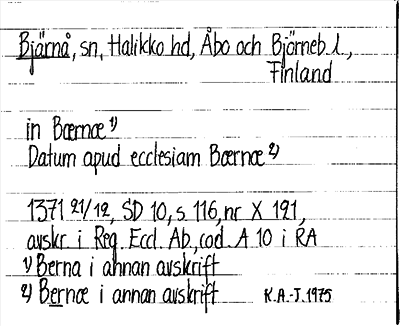 Bjärnå, sn, Halikko hd, Åbo och Björneb. l.,
Finland
in Bærnæ 1)
Datum apud ecclesiam Bærnæ 2)
1371 21/12, SD 10, s. 116, nr X 121,
avskr i Reg. Eccl. Ab., cod. A 10 i RA
1) Berna i annan avskrift
2) Bernæ i annan avskrift K.A.-J. 1975